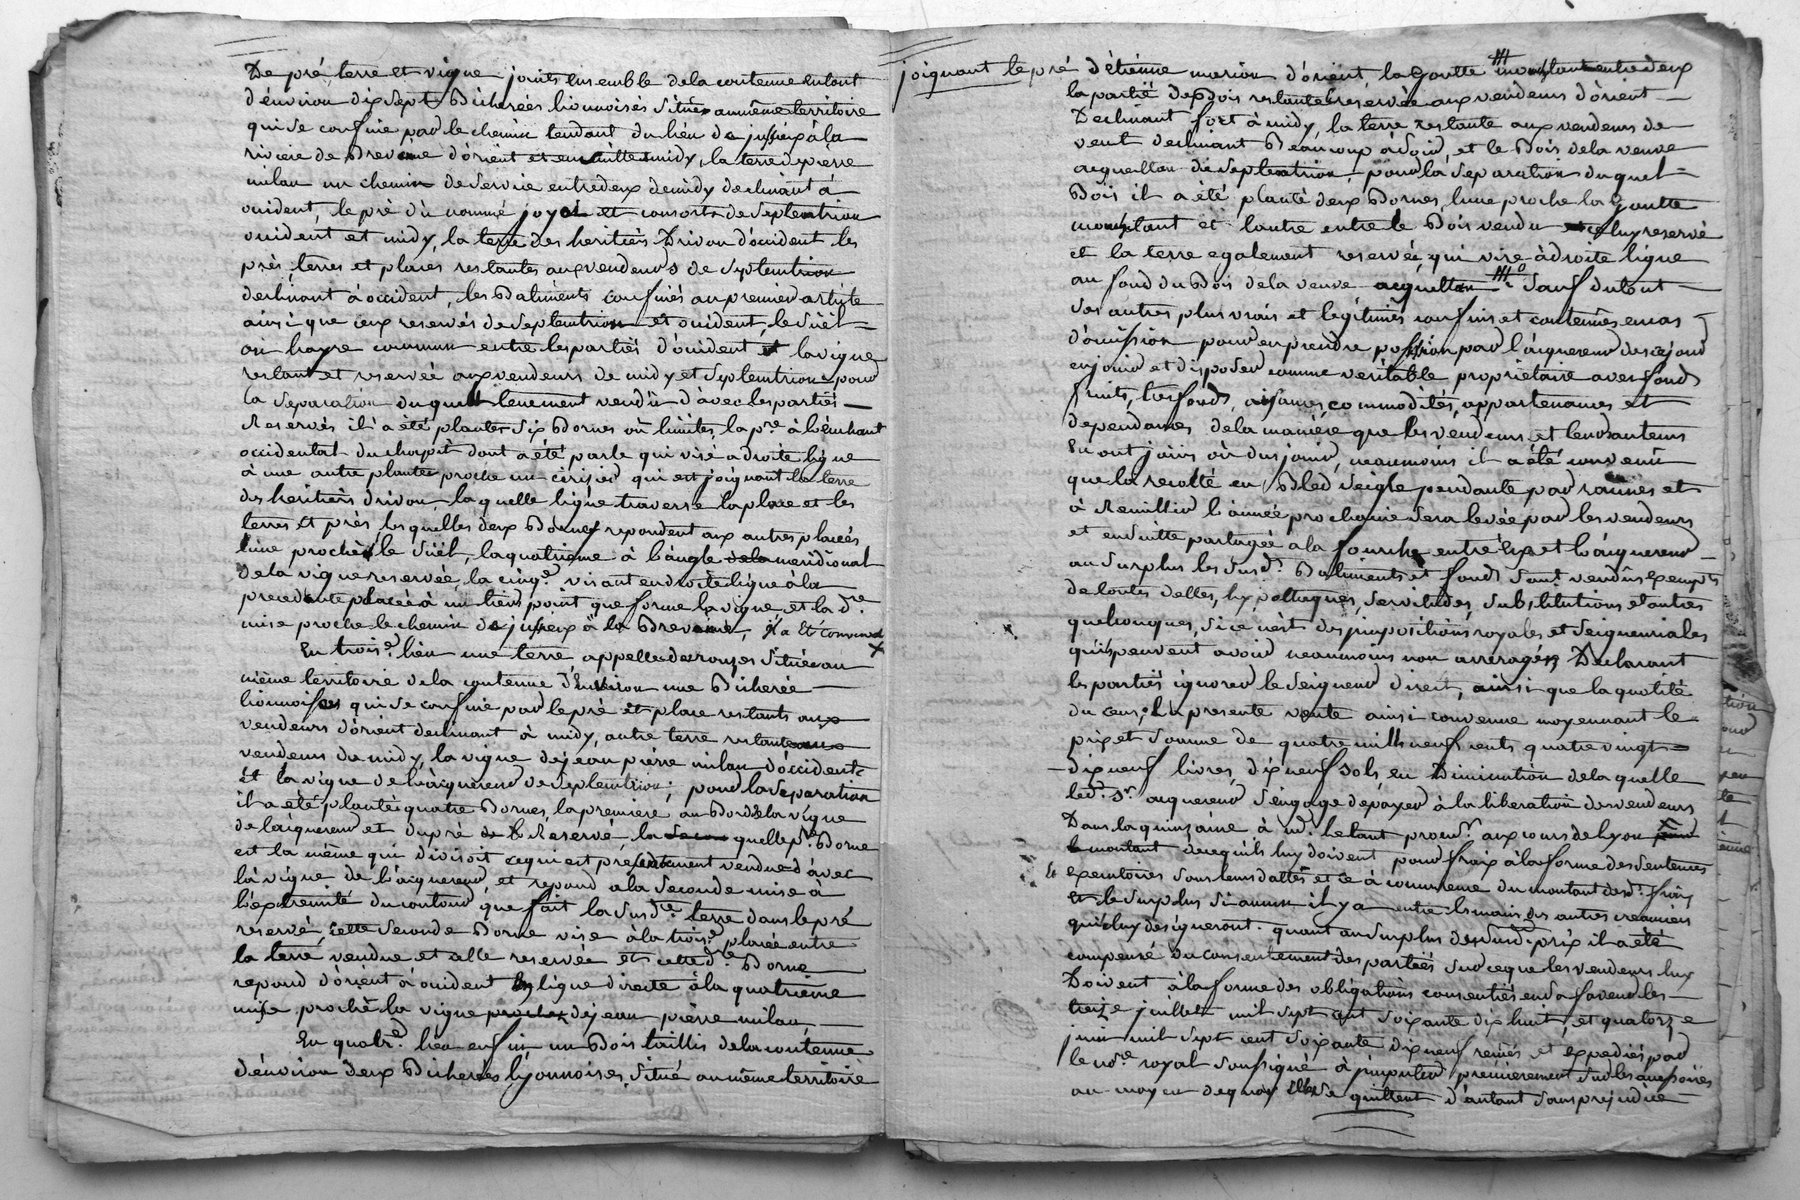 De pré terre et vigne joints ensemble dela contenue entout
d'énviron dix sept Bicherées lionnoises situés au même territoire
qui se confine par le chemin tendant du lieu de jussieux à la
riviere de Brevenne d'orient et midy, la terre de pierre
milan un chemin de service entredeux de midy declinant à
occident, le pré du nommé joyet et consorts de septentrion
occident et midy, la terre des heritiers Drivon d'occident les
près, terres et places restantes aux vendeurs de septentrion
declinant à occident, les Batiments confinés au premier article
ainsi que ceux reservés de septentrion et occident, le Suel
ou hayre commun entre les partiés d'occident et la vigne
restant et reservée aux vendeurs de midy et septentrion pour
la separation duquell tenement vendû d'avec les partiés
Reservés il a été planter six Bornes ou limites, la pre. à
occidental du chapit dont a été parlé qui vise a droite ligne
à une autre plantée proche un cerisier qui est joignant la terre
des heritiers drivon, laquelle ligne traverse la place et les
terres et près lesquelles deux Bornes repondent aux autres placées
l'une proche le Suel, la quatrieme à l'angle meridional
de la vigne reservée, la cinqe. visant en droite ligne à la
precedente placée à un tiers point que forme la vigne et la dre.
mise proche le chemin de jussieux à la Brevenne, il a été convenu
En troise. lieu une terre appellée des ronzes située au
même territoire dela contenue d'environ une Bicherée
lionnoises qui se confine par le pré et place restants aux
vendeurs d'orient declinant à midy, autre terre restante aux
vendeurs du midy, la vigne de jean pierre milan d'occident
et la vigne de l'acquereur de septentrion; pour la separation
il a été plantée quatre Bornes, la premiere au Bord de la vigne
de l'acquereur et du pré Reservé, la quelle pre. Borne
est la même qui divisoit ce qui est presentement vendu d'avec
la vigne de l'acquereur, et repond a la seconde mise à
l'extremité du contour que fait la susdte. terre dans le pré
reservé, cette seconde Borne vise à la troise. placée entre
la terre vendue et celle reservée et cette de. Borne
repond d'orient à occident en ligne directe à la quatrieme
mise proche la vigne de jean pierre milan,
En quatre. lieu enfin un Bois taillis dela contenue
d'énviron deux Bicherées lyonnoises, situé au même territoire
joignant le pré d'étienne marion d'orient la Goutte entre deux
la partié des bois restante et reservée aux vendeurs d'orient
Declinant fort à midy, la terre restante aux vendeurs de
vent declinant Beaucoup a soir, et le Bois de la veuve
acquettan de septentrion, pour la separation duquel
Bois il a été planté deux Bornes, l'une proche la Goutte
montant et l'autre entre le Bois vendu celuy reservé
et la terre egalement reservée, qui vise à droite ligne
au fond du Bois de la veuve acquettan sauf du tout
ses autres plus vrais et legitimes confins et contenues en cas
d'omission pour en prendre possession par l'acquereur des ce jour
en jouir et disposer comme veritable proprietaire avec fonds
fruits, tresfonds, aisances, commodités, appartenances et
dependances de la maniere que les vendeurs et leurs auteurs
En ont joüis où dus jouir, neanmoins il a été convenû
que la recolte en Bled seigle pendante par racines et
à Recuillir l'année prochaine sera levée par les vendeurs
et ensuitte partagée a la fourche entre eux et l'acquereur
au surplus les susds. Batiments et fonds sont vendûs exempts
de toutes dettes, hypotteques, servitudes, substitutions et autres
quelconques, si ce n'est des impositions royales et seigneuriales
qu'ils peuvent avoir neanmoins non arreragées Declarant
les partiés ignorer le seigneur direct, ainsi que la quotité
du cens; La presente vente ainsi convenue moyennant le
prix et somme de quatre mille neuf cents quatre vingt
dix neuf livres, dix neuf sols en Diminution de laquelle
led. sr. acquereur s'engage de payer à la liberation des vendeurs
Dans la quinzaine à me. procur. aux cours de lyon
le montant de ce qu'ils luy doivent pour frais à la forme des sentences
executoires sous leurs dattes et ce à commencer du montant desd. frais
et le surplus si aucun il y a entre les mains des autres creanciers
qu'ils luy designeront. quant au surplus du susd. prix il a été
compensé du consentement des partiés sur ce que les vendeurs luy
Doivent à la forme des obligations consenties en sa faveur les
treize juillet mil sept cent soixante dix huit, et quatorze
juin mil sept cent soixante dix neuf reçues et expediés par
le nore. royal soussigné à imputer premierement sur les accessoires
au moyen de quoy ils se quittent d'autant sans prejudice